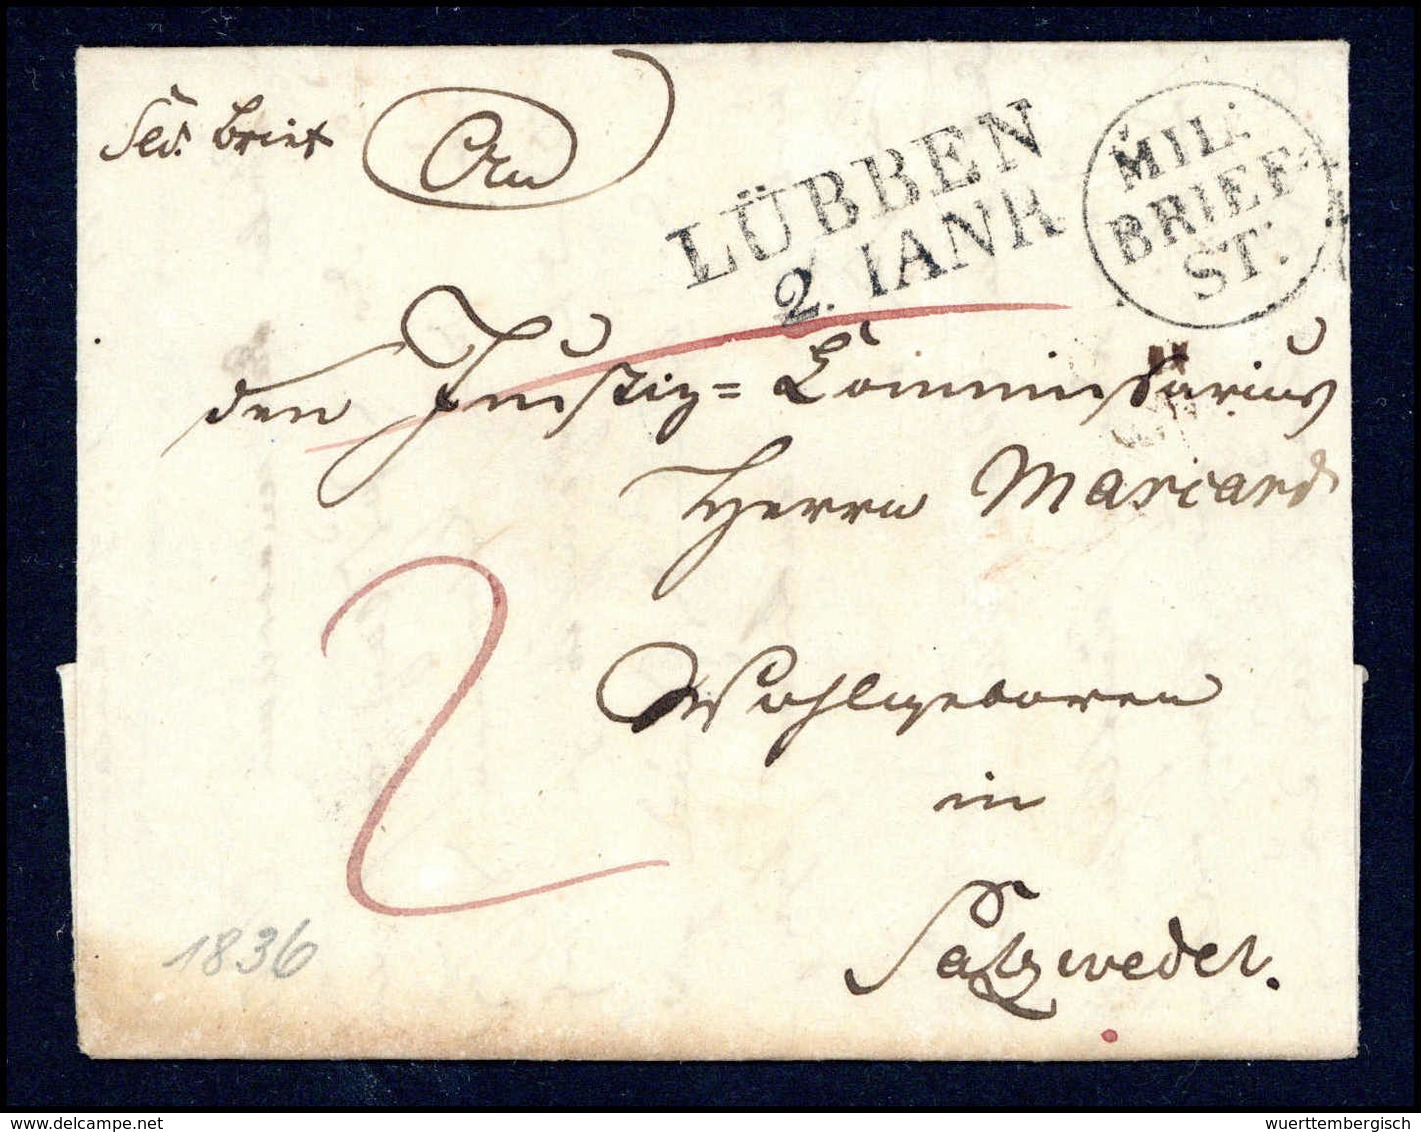 Sld. Brief
LÜBBEN
2. IANR
MIL:
BRIEF-
ST:
den Justiz= Commissarius
Herrn Marcard
Wohlgeboren
2
in
Salzwedel.
1836
delcampe.net
wuerttembergisch